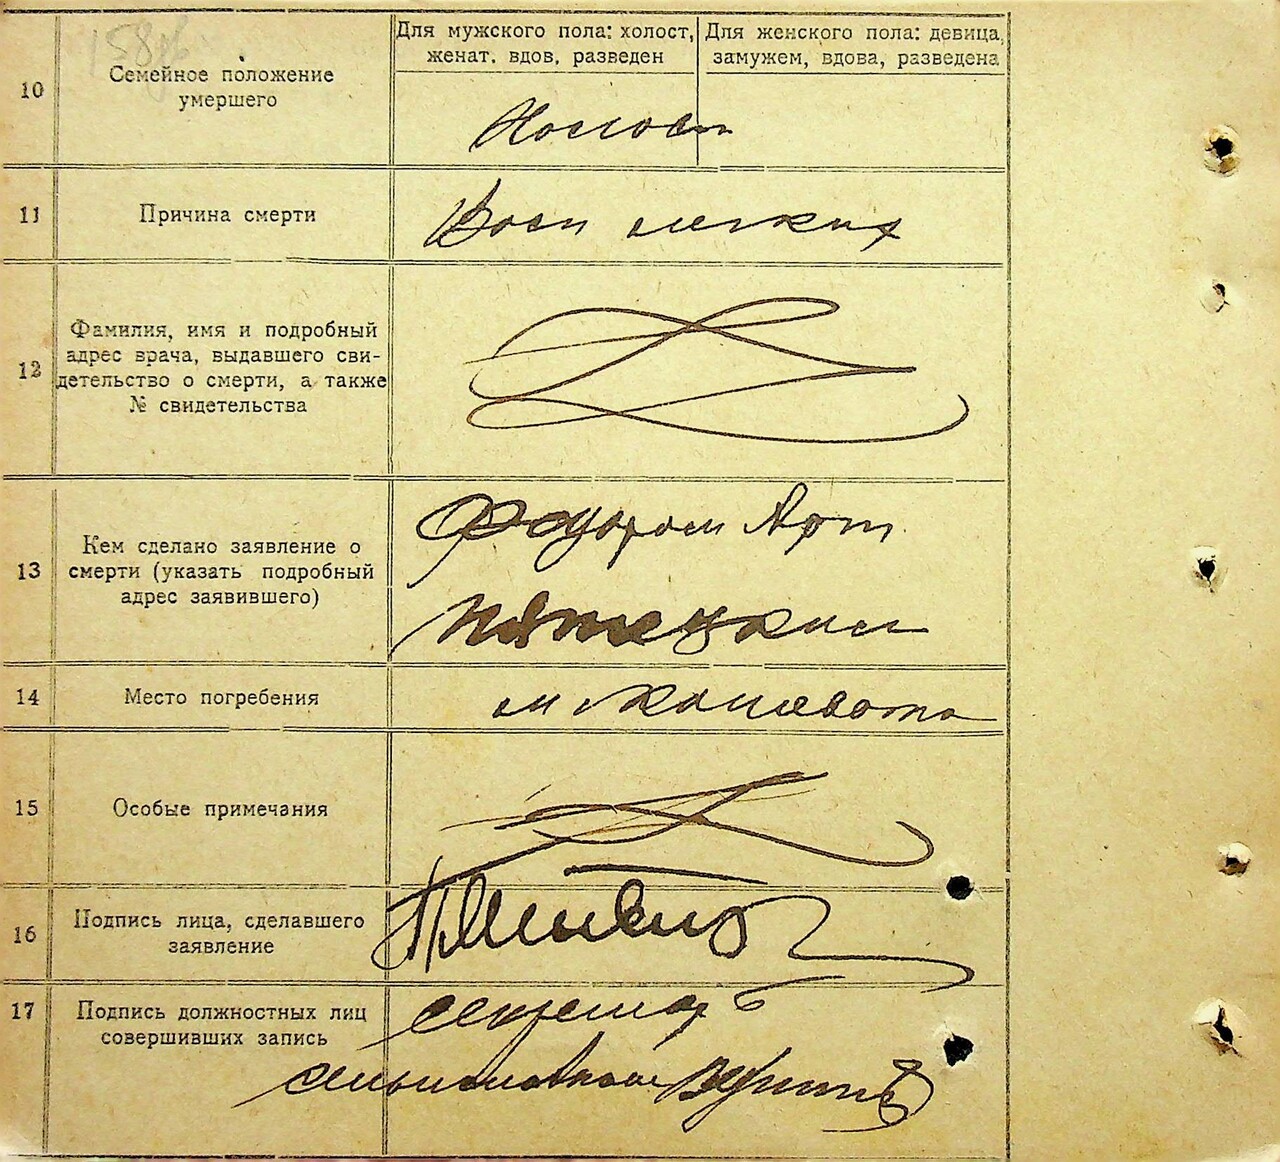 Для мужского пола: холост,
женат, вдов, разведен
Для женского пола: девица,
замужем, вдова, разведена
10
Семейное положение
умершего
Холост
11
Причина смерти
Восп легких
12
Фамилия, имя и подробный
адрес врача, выдавшего сви-
детельство о смерти, а также
№ свидетельства
13
Кем сделано заявление о
смерти (указать подробный
адрес заявившего)
Федором Арт
14
Место погребения
м
15
Особые примечания
16
Подпись лица, сделавшего
заявление
17
Подпись должностных лиц
совершивших запись
секретарь